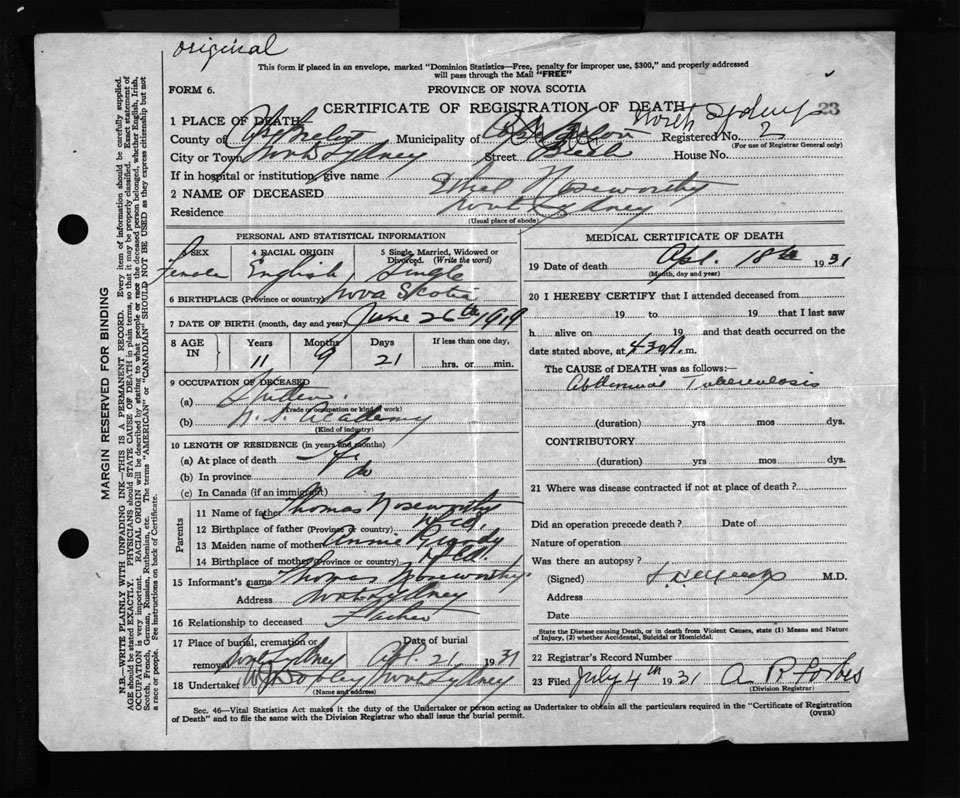 original
This form if placed in an envelope, marked "Dominion Statistics—Free, penalty for improper use, $300," and properly addressed
will pass through the Mail "FREE"
FORM 6.
PROVINCE OF NOVA SCOTIA
CERTIFICATE OF REGISTRATION OF DEATH
North Sydney 23
1 PLACE OF DEATH
County of Cape Breton Municipality of Registered No. 2
(For use of Registrar General only)
City or Town North Sydney Street House No.
If in hospital or institution, give name
2 NAME OF DECEASED Ethel Noseworthy
Residence North Sydney
(Usual place of abode)
PERSONAL AND STATISTICAL INFORMATION
SEX Female
4 RACIAL ORIGIN English
5 Single, Married, Widowed or Divorced. (Write the word) Single
6 BIRTHPLACE (Province or country) Nova Scotia
7 DATE OF BIRTH (month, day and year) June 26th 1919
8 AGE IN Years Months Days If less than one day,
11 9 21 hrs. or min.
9 OCCUPATION OF DECEASED
(a)
(Trade or occupation or kind of work)
(b) N.S. Academy
(Kind of industry)
10 LENGTH OF RESIDENCE (in years and months)
(a) At place of death Life
(b) In province do
(c) In Canada (if an immigrant)
Parents
11 Name of father Thomas Noseworthy
12 Birthplace of father (Province or country) Nfld.
13 Maiden name of mother Annie
14 Birthplace of mother (Province or country) Nfld.
15 Informant's name Thomas Noseworthy
Address North Sydney
16 Relationship to deceased Father
17 Place of burial, cremation or removal North Sydney
Date of burial Apl. 21 1931
18 Undertaker North Sydney
(Name and address)
MEDICAL CERTIFICATE OF DEATH
19 Date of death Apl. 18th 1931
(Month, day and year)
20 I HEREBY CERTIFY that I attended deceased from
19 to 19 that I last saw
h alive on 19 and that death occurred on the
date stated above, at 430 A. m.
The CAUSE OF DEATH was as follows:—
Abdominal Tuberculosis
(duration) yrs mos dys.
CONTRIBUTORY
(duration) yrs mos dys.
21 Where was disease contracted if not at place of death?
Did an operation precede death? Date of
Nature of operation
Was there an autopsy?
(Signed) M.D.
Address
Date
State the Disease causing Death, or in death from Violent Causes, state (1) Means and Nature
of Injury, (2) whether Accidental, Suicidal or Homicidal.
22 Registrar's Record Number
23 Filed July 4th 1931 A R Forbes
(Division Registrar)
Sec. 46—Vital Statistics Act makes it the duty of the Undertaker or person acting as Undertaker to obtain all the particulars required in the "Certificate of Registration
of Death" and to file the same with the Division Registrar who shall issue the burial permit.
(OVER)
MARGIN RESERVED FOR BINDING
N.B.—WRITE PLAINLY WITH UNFADING INK—THIS IS A PERMANENT RECORD. Every item of information should be carefully supplied.
AGE should be stated EXACTLY. PHYSICIANS should STATE CAUSE OF DEATH in plain terms, so that it may be properly classified. Exact statement of
OCCUPATION is very important. RACIAL ORIGIN will be described by stating to what people or race the deceased person belonged, whether English, Irish,
Scotch, French, German, Russian, Ruthenian, etc. The terms "AMERICAN" or "CANADIAN" SHOULD NOT BE USED as they express citizenship but not
a race or people. See instructions on back of Certificate.